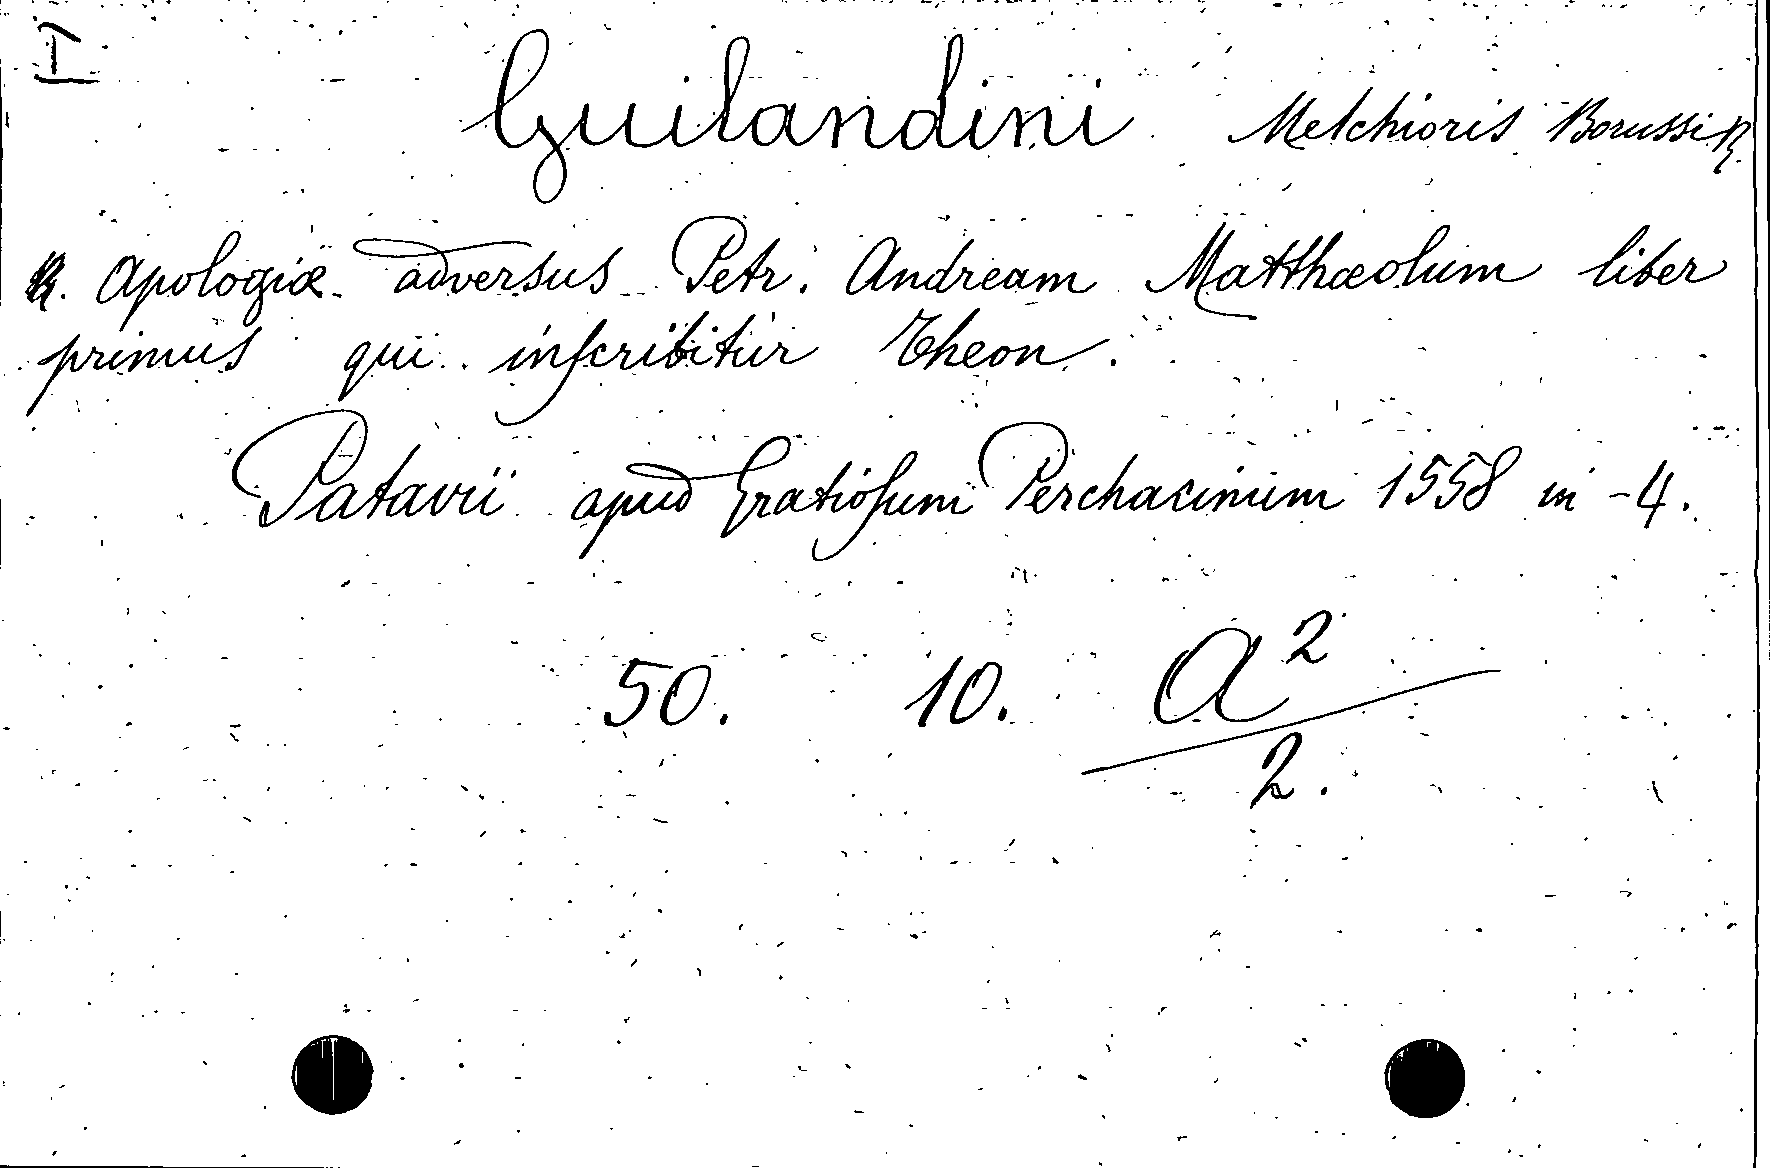 Guilandini Melchioris Borussi R.
R. Apologiæ adversus Petr. Andream Matthæolum liber
primus qui inscribitur Theon.
Patavii apud Gratiosum Perchacinum 1558 in -4.
50. 10. a²
2.